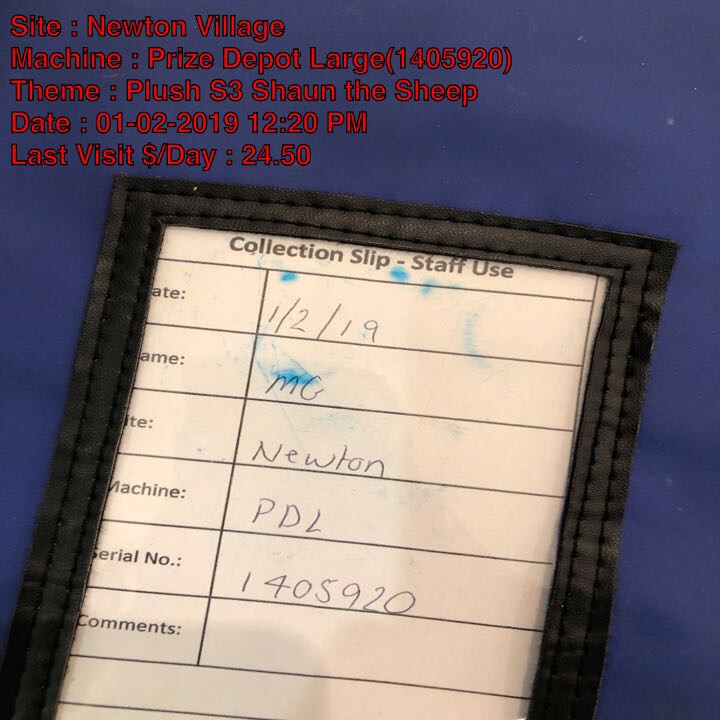 Site : Newton Village
Machine : Prize Depot Large(1405920)
Theme : Plush S3 Shaun the Sheep
Date : 01-02-2019 12:20 PM
Last Visit $/Day : 24.50
Collection Slip - Staff Use
ate: 1/2/19
ame: MG
ite: Newton
Machine: PDL
Serial No.: 1405920
Comments: